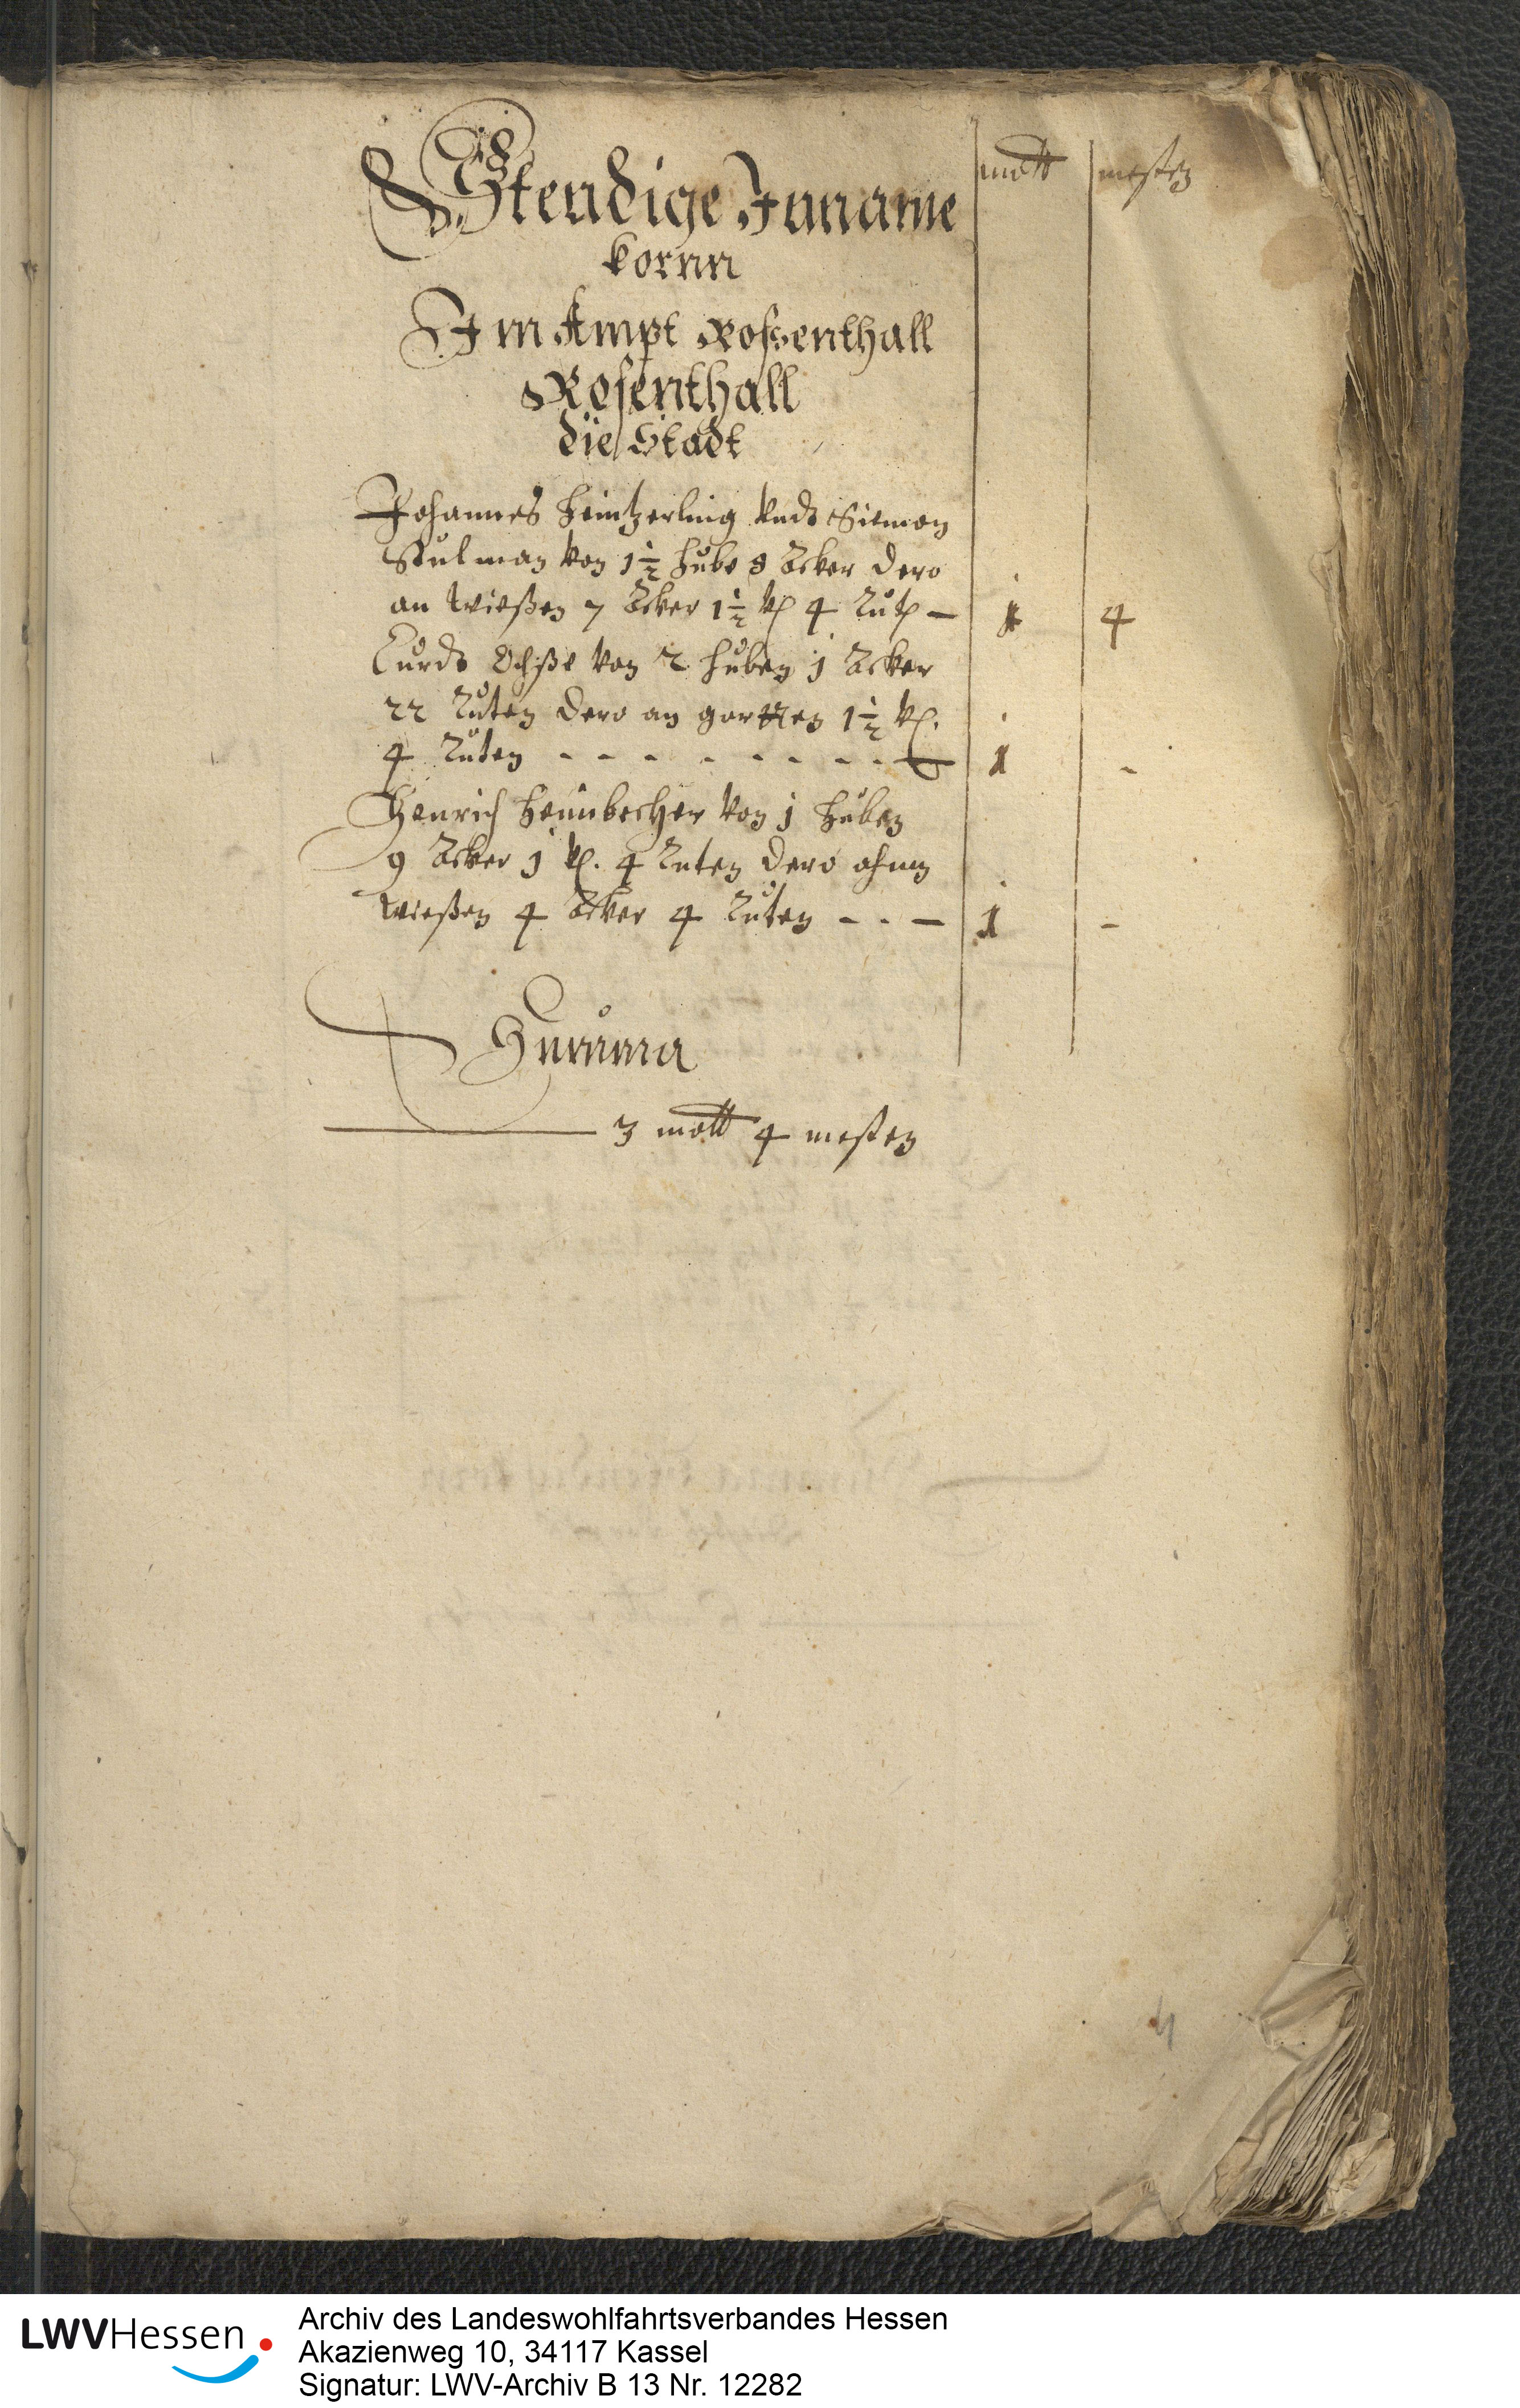 Stendige Inname
kornn
Im Ampt Rossenthall
Rosenthall
die Stadt
mött mesten
Johannes Heintzerling Vnd Siemon
Von 1 1/2 Hube 8 Äcker dero
an Wießen 7 Äcker 1 1/2 v 4 Rut — 1 4
Curdt Ochße Von 2 Huben 1 Äcker
22 Ruten dero an gartten 1 1/2 v.
4 Ruten - - - - - - - - - 1 -
Henrich Heimbecher Von 1 Huben
9 Äcker 1 v. 4 Ruten dero ahnn
Wießen 4 Äcker 4 Ruten - - - 1 -
Summa
3 mött 4 mesten
4
LWVHessen
Archiv des Landeswohlfahrtsverbandes Hessen
Akazienweg 10, 34117 Kassel
Signatur: LWV-Archiv B 13 Nr. 12282